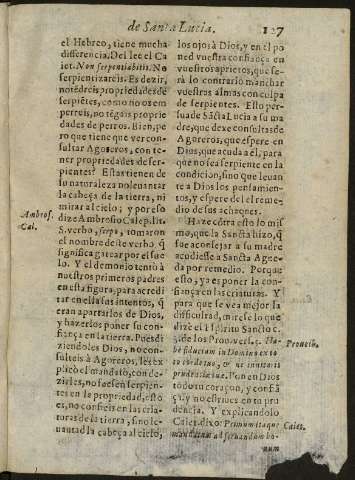 de Santa Lucia. 127
el Hebreo, tiene mucha
diferencia. Del lee el Ca
iet. Non serpentiabitis. No
serpentizareis. Es dezir,
no tẽdreis propriedades de
serpiẽtes, como no os em
perreis, no tẽgais proprie
dades de perros. Bien, pe
ro que tiene que ver con-
sultar Agoreros, con te-
ner propriedades de ser-
pientes? Estas tienen de
su naturaleza no leuantar
la cabeça de la tierra, ni
mirar al cielo; y por eso
dize Ambrosio Calepi. lit.
S. verbo, serpo, tomaron
el nombre deste verbo q̃
significa gatear por el sue
lo. Y el demonio tentò à
nuestros primeros padres
en esta figura, para acredi
tar en ella sus intentos, q̃
eran apartarlos de Dios,
y hazerlos poner su con-
fiança en la tierra. Pues di
ziendoles Dios, no con-
sulteis à Agoreros, les ex
plicò el mandato, con de-
zirles, no seais en serpien-
tes en la propriedad, esto
es, no confieis en las cria-
turas de la tierra, sino le-
uantad la cabeça al cielo,
Ambros.
Cal.
los ojos à Dios, y en el po
ned vuestra confiança en
vuestros aprietos, que se-
rà lo contrario manchar
vuestras almas con culpa
de serpientes. Esto per-
suade Sãcta Lucia a su ma
dre, que dexe consultas de
Agoreros, que espere en
Dios, que acuda a èl, para
que no sea serpiente en la
condicion, sino que leuan
te a Dios los pensamien-
tos, y espere del el reme-
dio de sus achaques.
Haze cõtra esto lo mis
mo, que la Sancta hizo, q̃
fue aconsejar a su madre
acudiesse a Sancta Ague-
da por remedio. Porque
esto, ya es poner la con-
fiança en las criaturas. Y
para que se vea mejor la
dificultad, mirese lo que
dize el Espiritu Sancto c.
3. de los Prou. vers. 5. Ha-
be fiduciam in Domino ex to
to corde tuo, & ne innitaris
prudentiæ tuæ. Pon en Dios
todo tu coraçon, y confiã
ça, y no estriues en tu pru
dencia. Y explicandolo
Caiet. dixo: Primum itaque
mandatum ad seruandum bo
num
Prouerb.
Caiet.